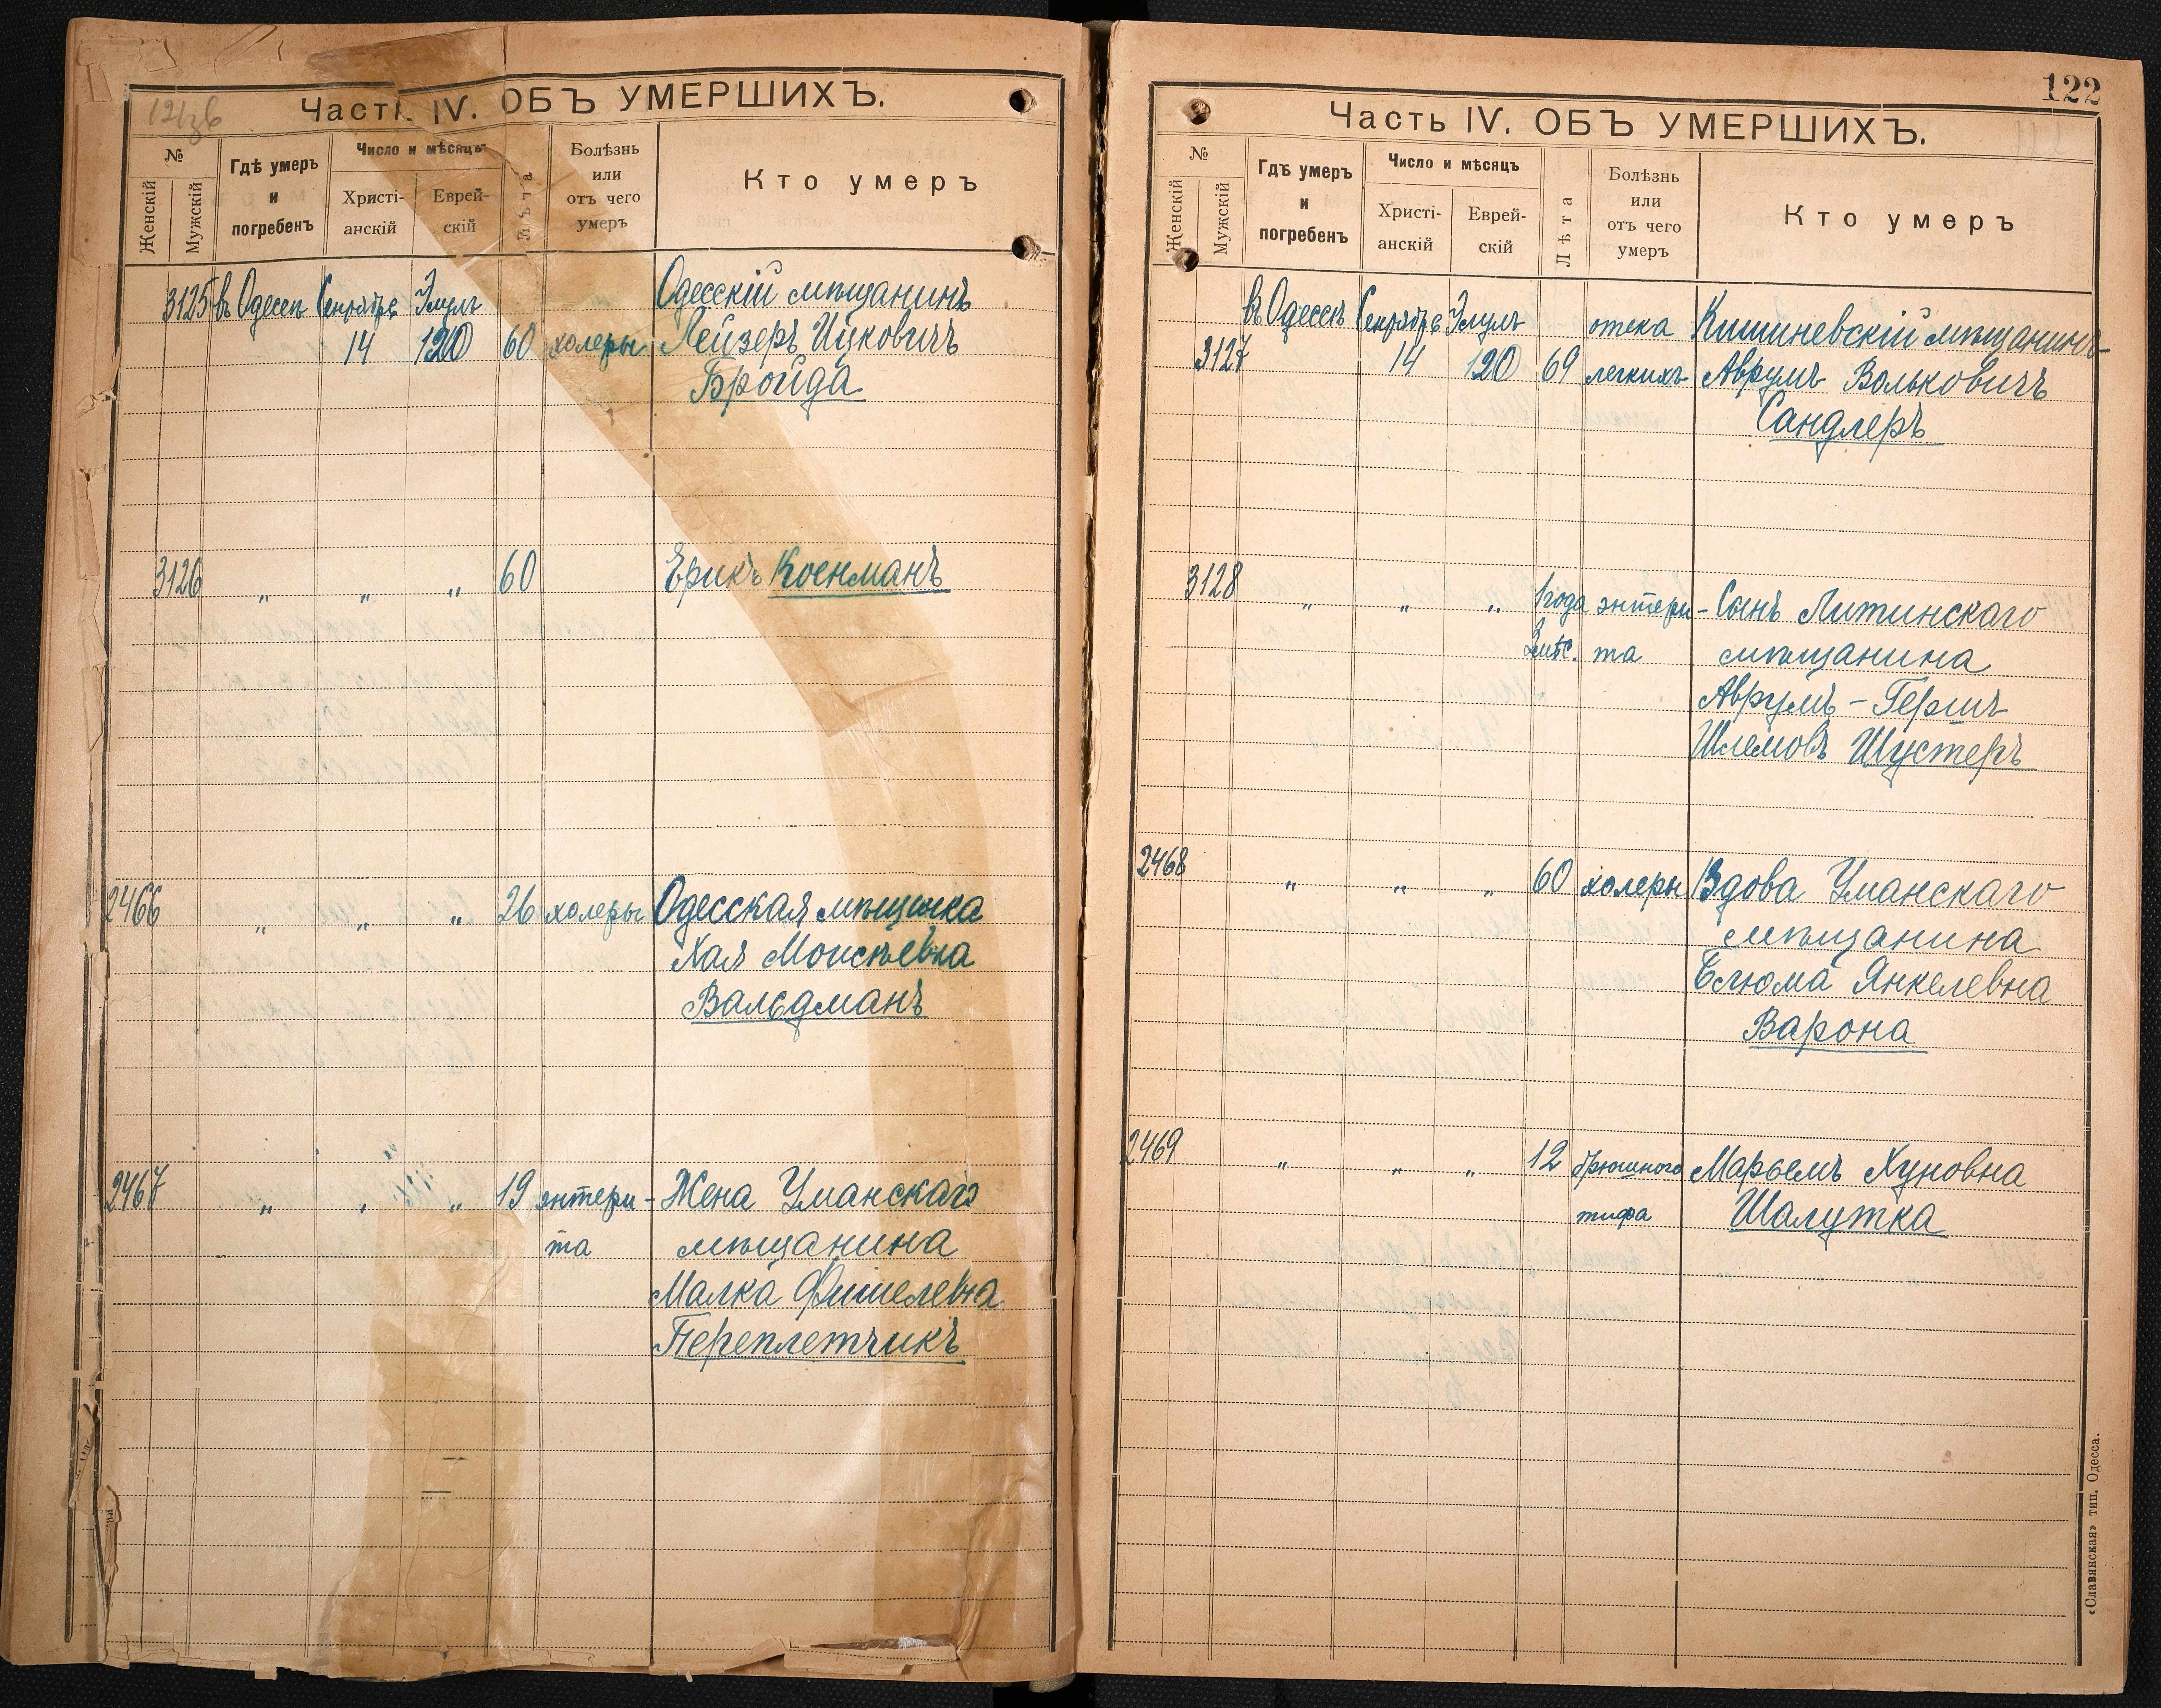 121зв
Часть IV. ОБЪ УМЕРШИХЪ.
№
Женскій
Мужскій
Гдѣ умеръ
и
погребенъ
Число и мѣсяцъ
Христі-
анскій
Еврей-
скій
Лѣта
Болѣзнь
или
отъ чего
умеръ
Кто умеръ
3125 въ Одессѣ Сентября Элулъ Одесскій мѣщанинъ
14 120 60 холеры Лейзеръ Ицковичъ
Бройда
3126 „ „ „ 60 Ерикъ Коенманъ
2466 „ „ „ 26 холеры Одесская мѣщанка
Хая Моисѣевна
Вальдманъ
2467 „ „ „ 19 энтери- Жена Уманскаго
та мѣщанина
Малка Фишелевна
Переплетчикъ
122
Часть IV. ОБЪ УМЕРШИХЪ.
№
Женскій
Мужскій
Гдѣ умеръ
и
погребенъ
Число и мѣсяцъ
Христі-
анскій
Еврей-
скій
Лѣта
Болѣзнь
или
отъ чего
умеръ
Кто умеръ
въ Одессѣ Сентября Элулъ отека Кишиневскій мѣщанинъ
3127 14 120 69 легкихъ Аврумъ Вольковичъ
Сандлеръ
3128 „ „ „ 1 года энтери- Сынъ Литинскаго
мѣс. та мѣщанина
Аврумъ-Гершъ
Шлемовъ Шустеръ
2468 „ „ „ 60 холеры Вдова Уманскаго
мѣщанина
Блюма Янкелевна
Варона
2469 „ „ „ 12 брюшного Марьемъ Хуновна
тифа Шалутка
«Славянская» тип. Одесса.